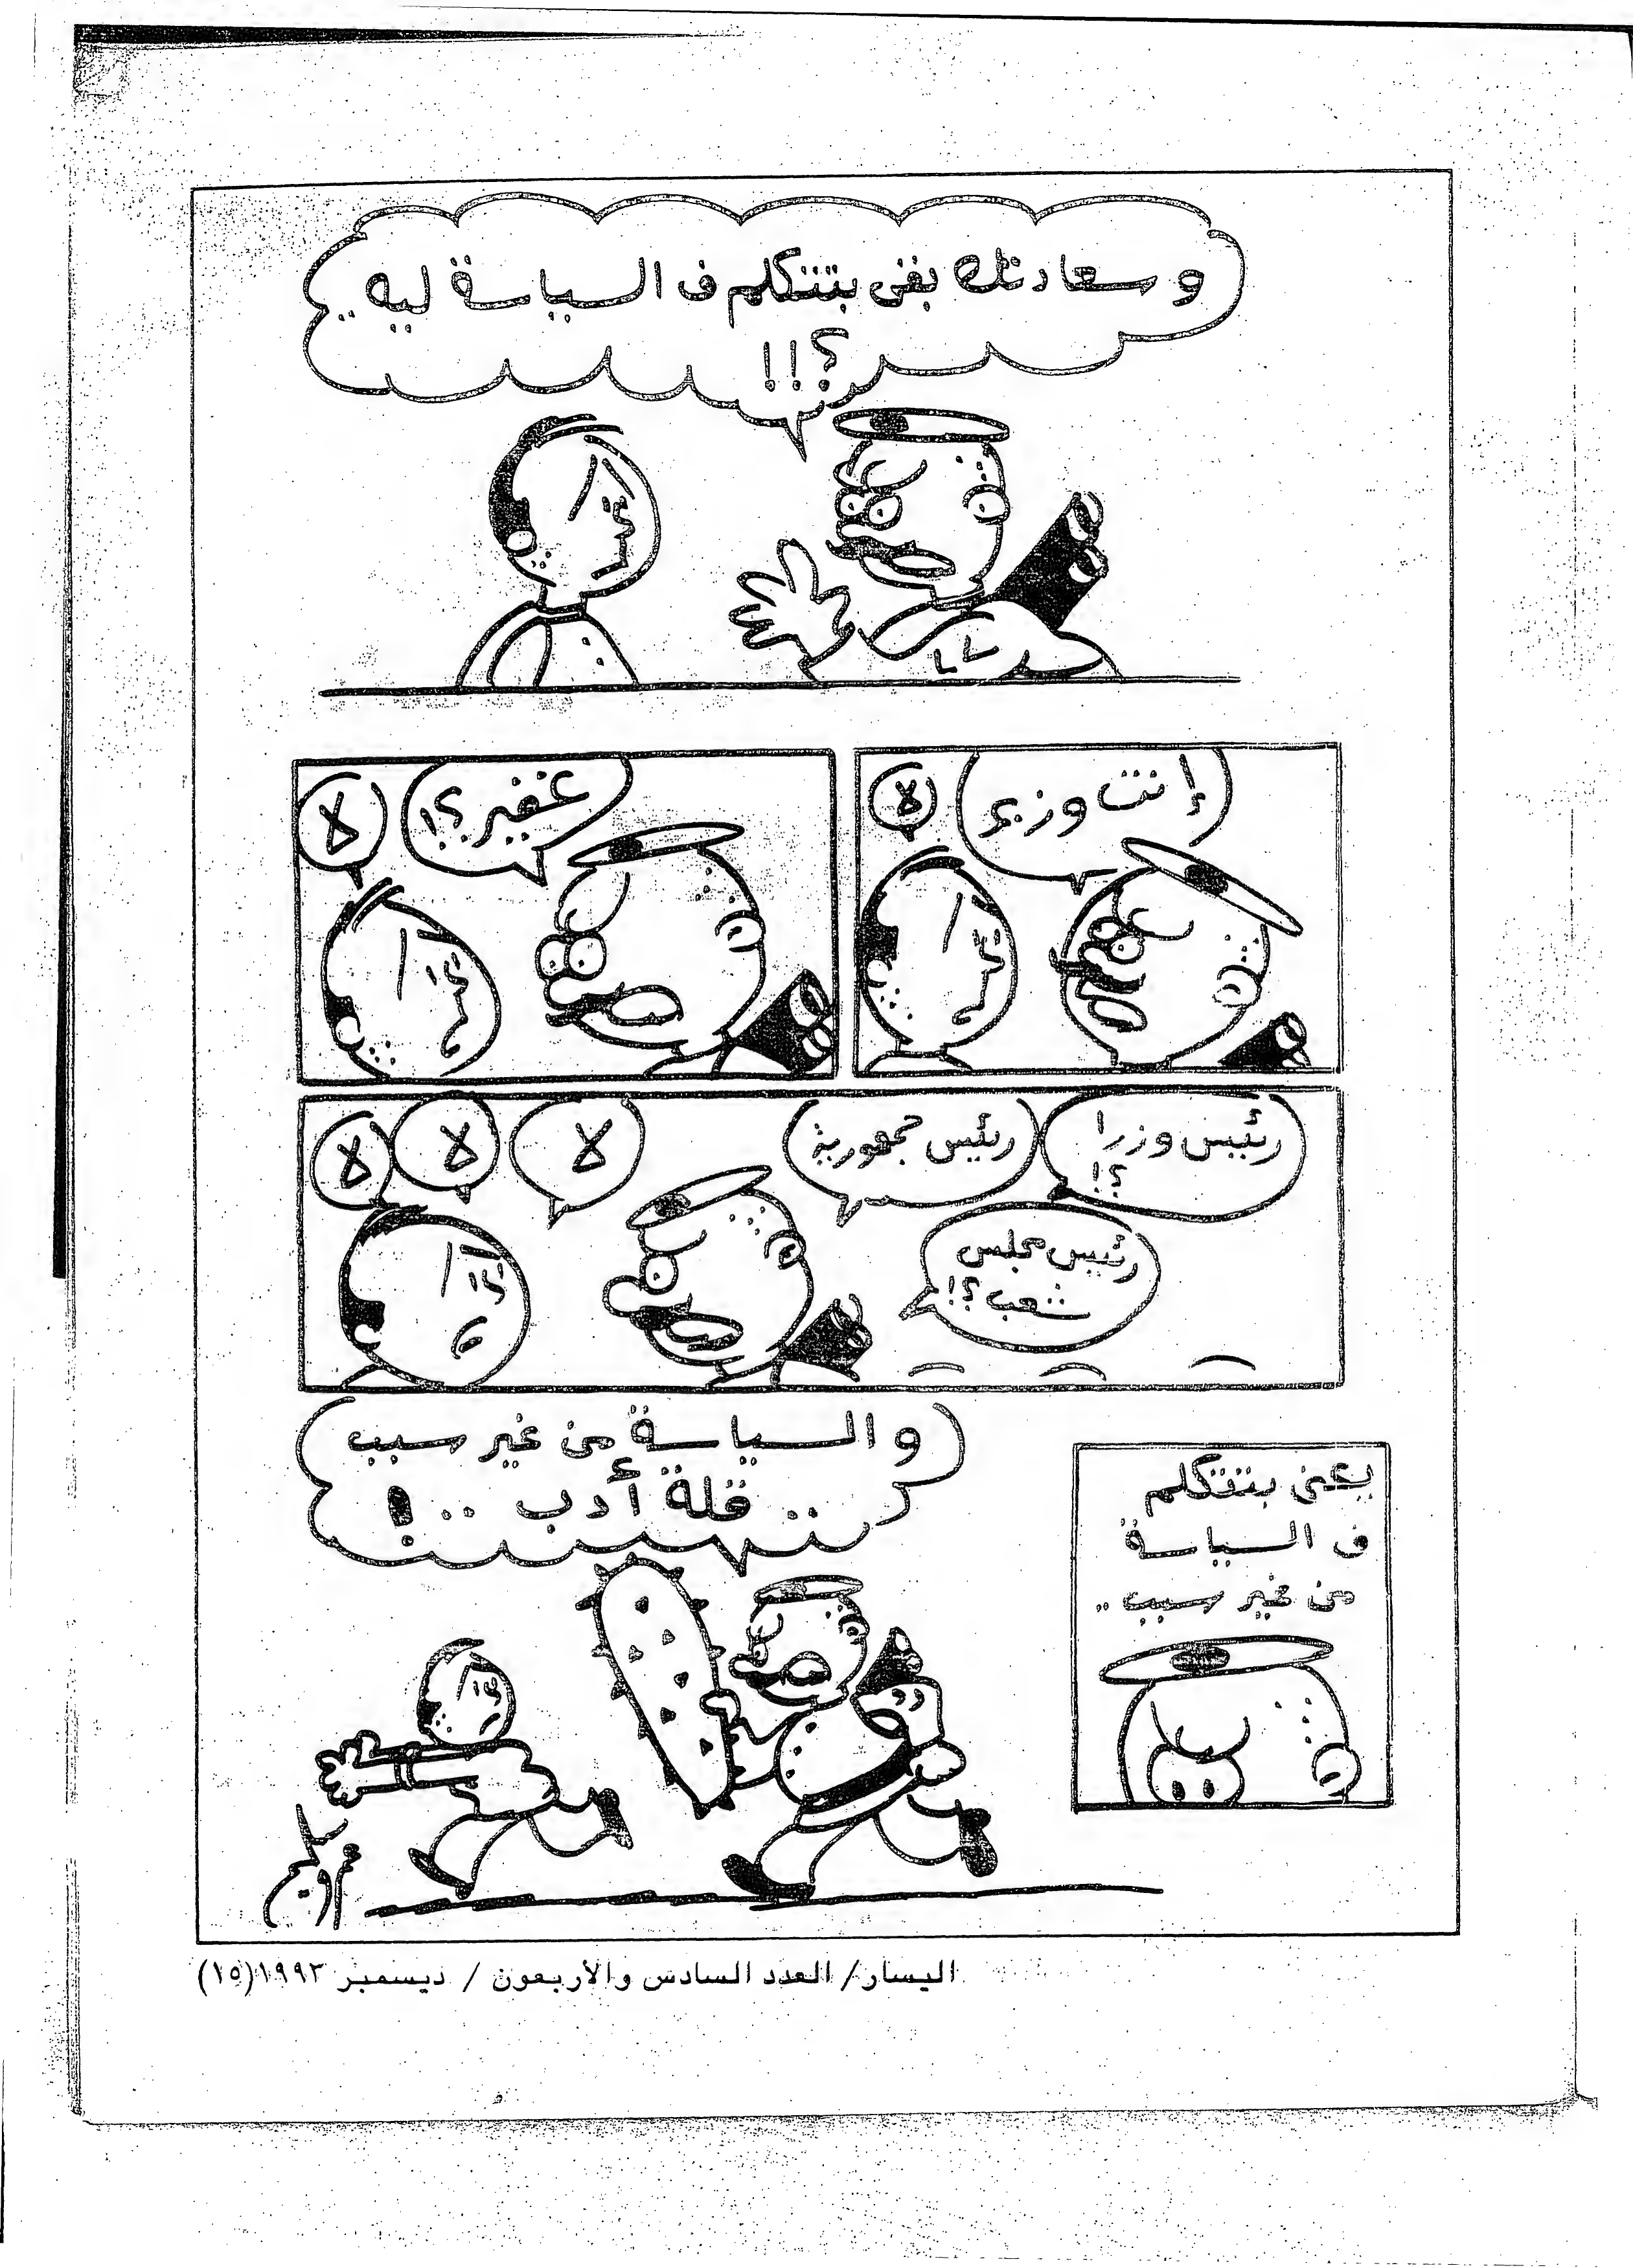 وسعادتك بقى بتتكلم ف السياسة ليه ..
؟!!
إنت وزير
لا
غفير؟!
لا
رئيس وزرا
؟!
رئيس جمهورية
رئيس مجلس
شعب؟!
لا
لا
لا
يعنى بتتكلم
ف السياسة
من غير سبب ..
والسياسة من غير سبب
.. قلة أدب ..!
عمرو
اليسار/ العدد السادس والأربعون / ديسمبر ١٩٩٣(١٥)